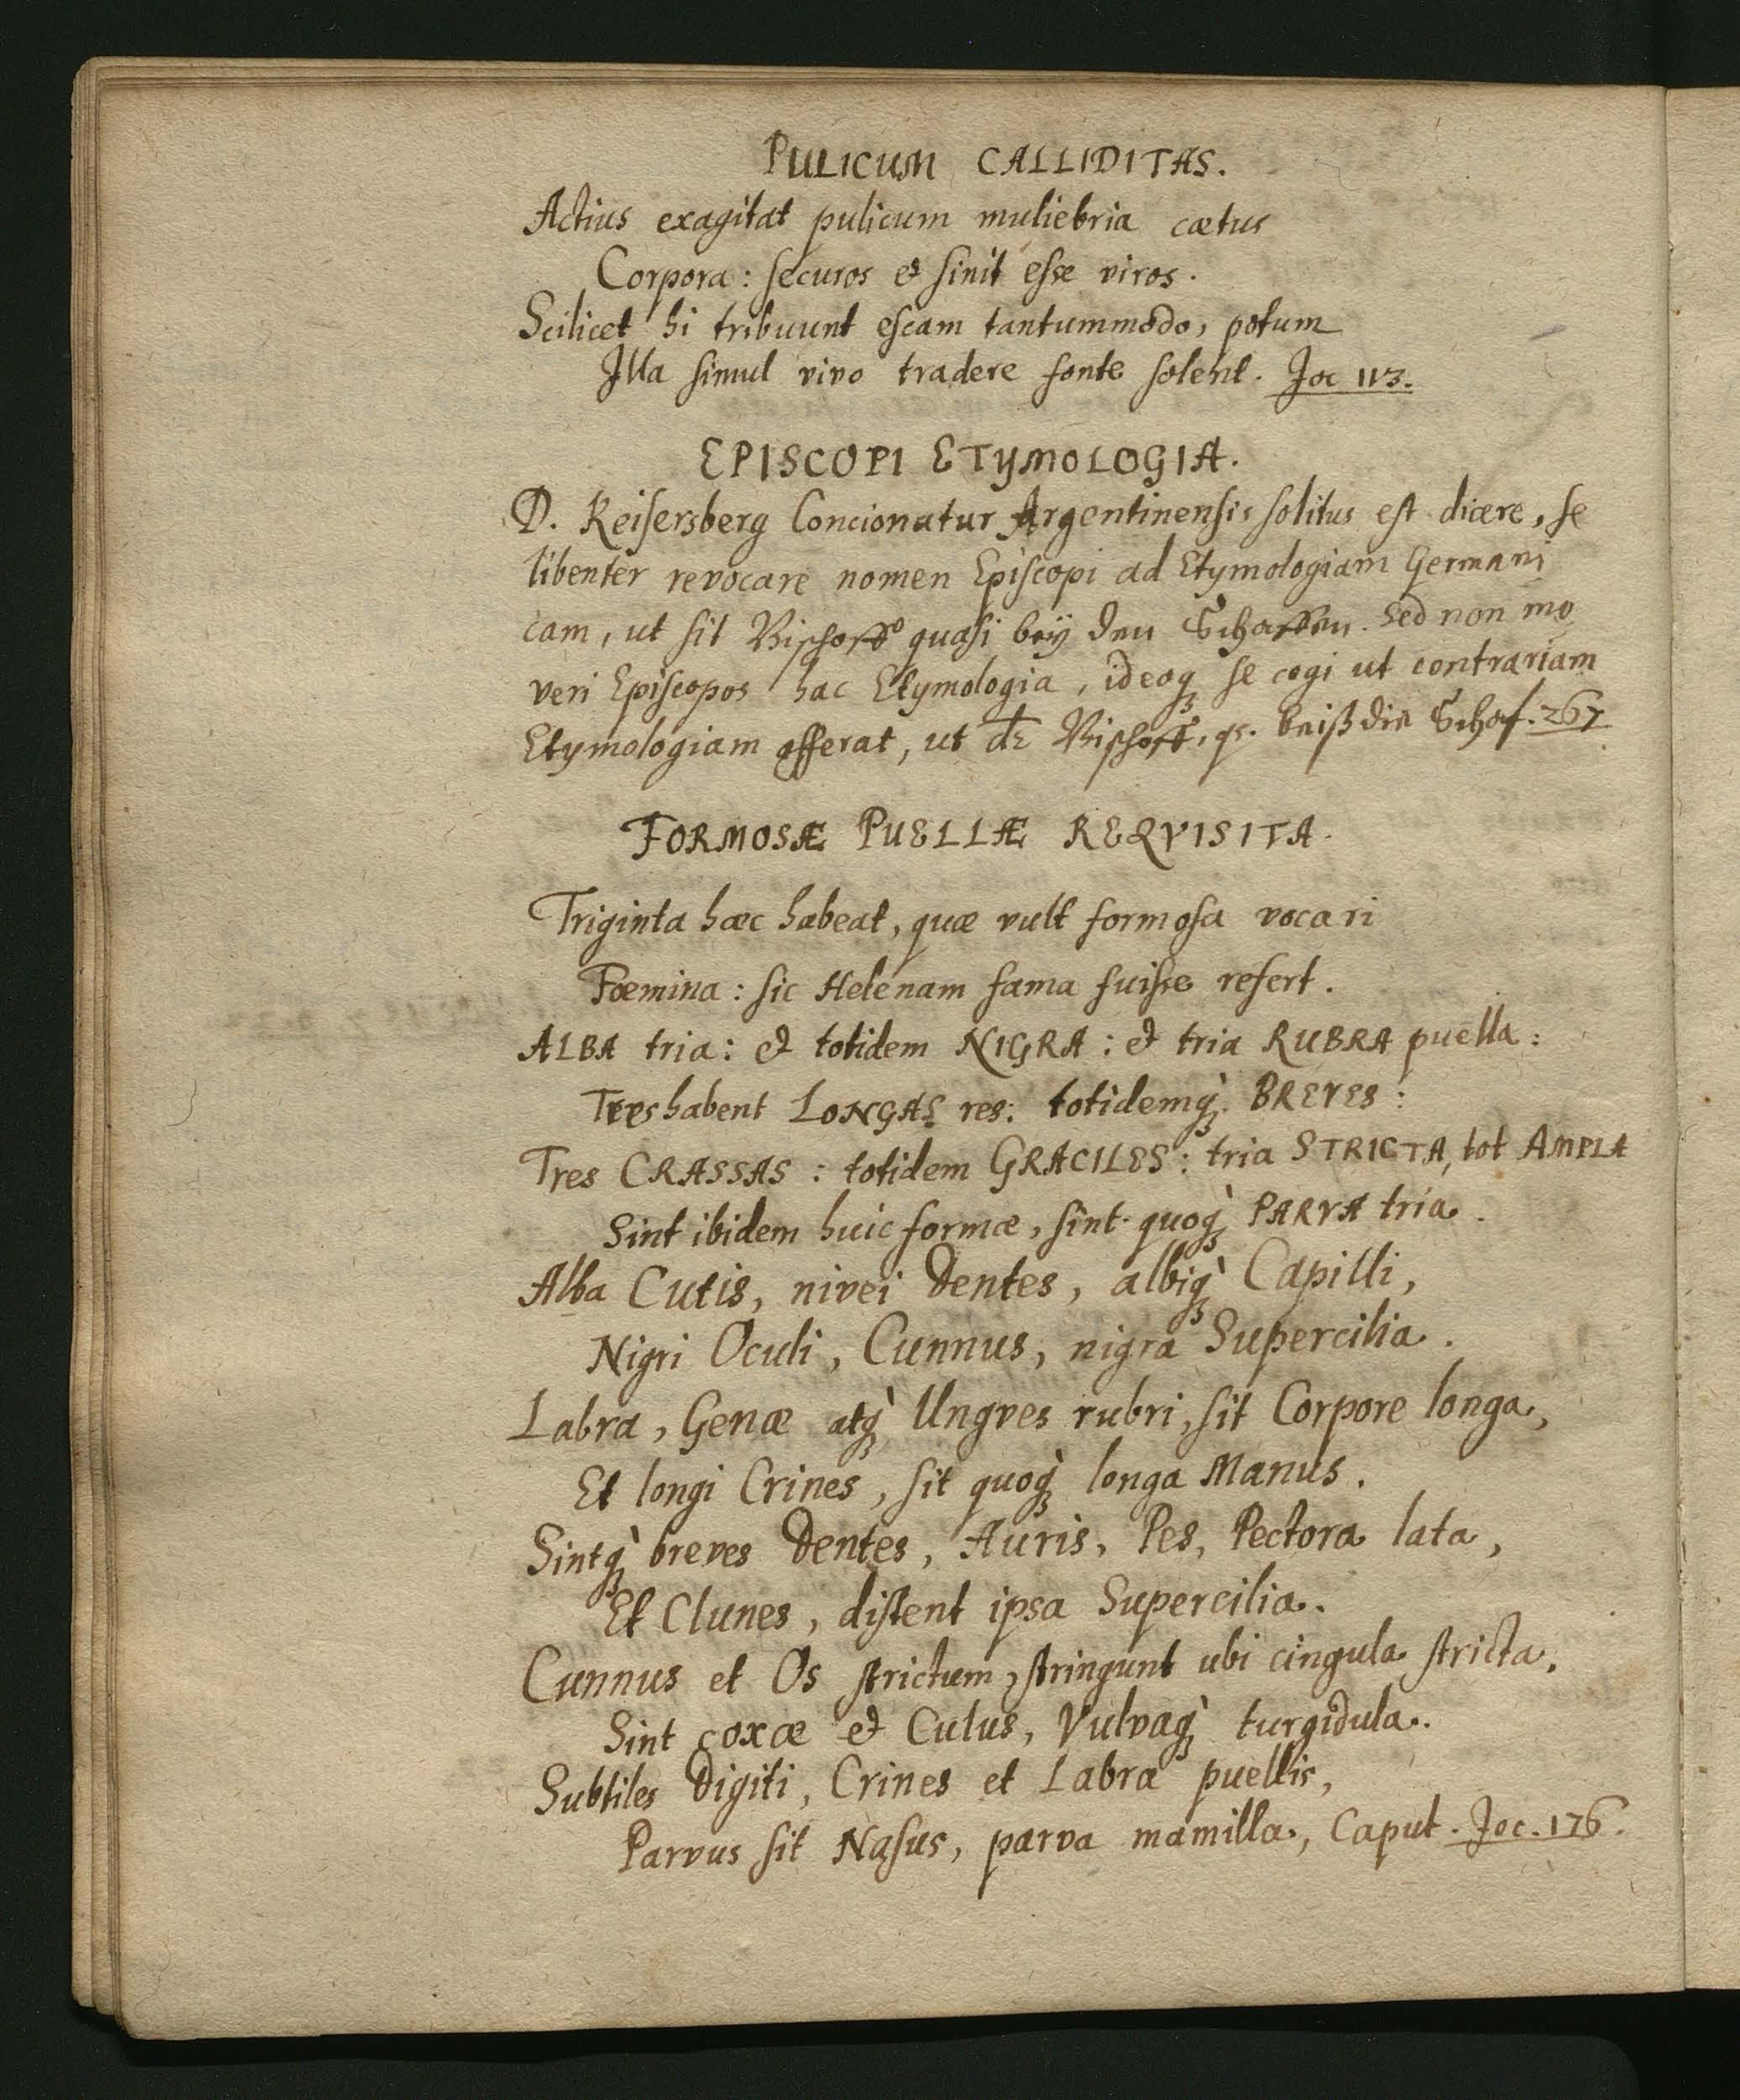 PULICUM CALLIDITAS.
Actius exagitat pulicum muliebria cœtus
Corpora: securos et sinit esse viros.
Scilicet hi tribuunt escam tantummodo, potum
Illa simul vivo tradere fonte solent. Joc 113.
EPISCOPI ETYMOLOGIA.
D. Keisersberg Concionatur Argentinensis solitus est dicere, se
libenter revocare nomen Episcopi ad Etymologiam Germani
cam, ut sit Bischoff quasi beÿ den Schaffen. Sed non mo
veri Episcopos hac Etymologia, ideoq́ se cogi ut contrariam
Etymologiam afferat, ut dr Bischoff, qs. beiß die Schaf. 267
FORMOSÆ PUELLÆ REQVISITA.
Triginta hæc habeat, quæ vult formosa vocari
Fœmina: sic Helenam fama fuisse refert.
ALBA tria: et totidem NIGRA: et tria RUBRA puella:
Tres habent LONGAS res: totidemq̀ BREVES:
Tres CRASSAS: totidem GRACILES: tria STRICTA, tot AMPLA
Sint ibidem huic formæ, sint quoq̀ PARVA tria.
Alba Cutis, nivei Dentes, albiq̀ Capilli,
Nigri Oculi, Cunnus, nigra Supercilia.
Labra, Genæ atq̀ Ungves rubri, sit Corpore longa,
Et longi Crines, sit quoq̀ longa Manus.
Sintq̀ breves Dentes, Auris, Pes, Pectora lata,
Et Clunes, distent ipsa Supercilia.
Cunnus et Os strictum, stringunt ubi cingula stricta.
Sint coxæ et Culus, Vulvaq̀ turgidula.
Subtiles Digiti, Crines et Labra puellis,
Parvus sit Nasus, parva mamilla, Caput. Joc. 176.